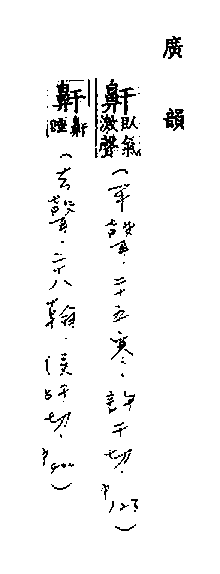 廣韻
鼾臥氣激聲(平聲·二十五寒·許干切·P123)
鼾鼾睡(去聲·二十八翰·侯旰切·P400)